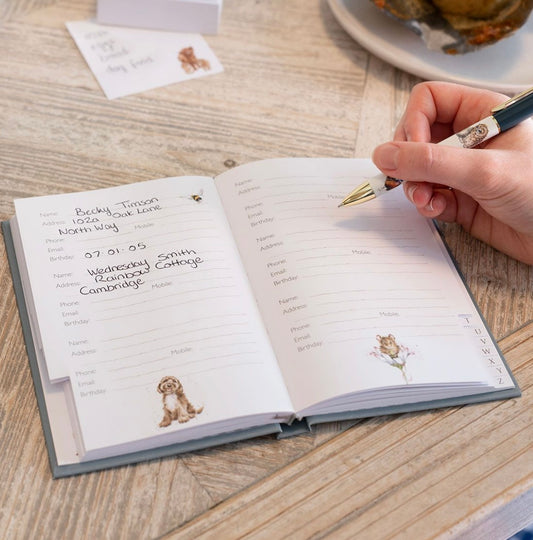 eggs
bread
dog food
Name: Becky Timson
Address: 102a Oak Lane
North Way
Phone: Mobile:
Email:
Birthday: 07.01.05
Name: Wednesday Smith
Address: Rainbow Cottage
Cambridge
Phone: Mobile:
Email:
Birthday:
Name:
Address:
Phone: Mobile:
Email:
Birthday:
Name:
Address:
Phone: Mobile:
Email:
Birthday:
Name:
Address:
Phone: Mobile:
Email:
Birthday:
Name:
Address:
Phone: Mobile:
Email:
Birthday:
T
U
V
W
X
Y
Z